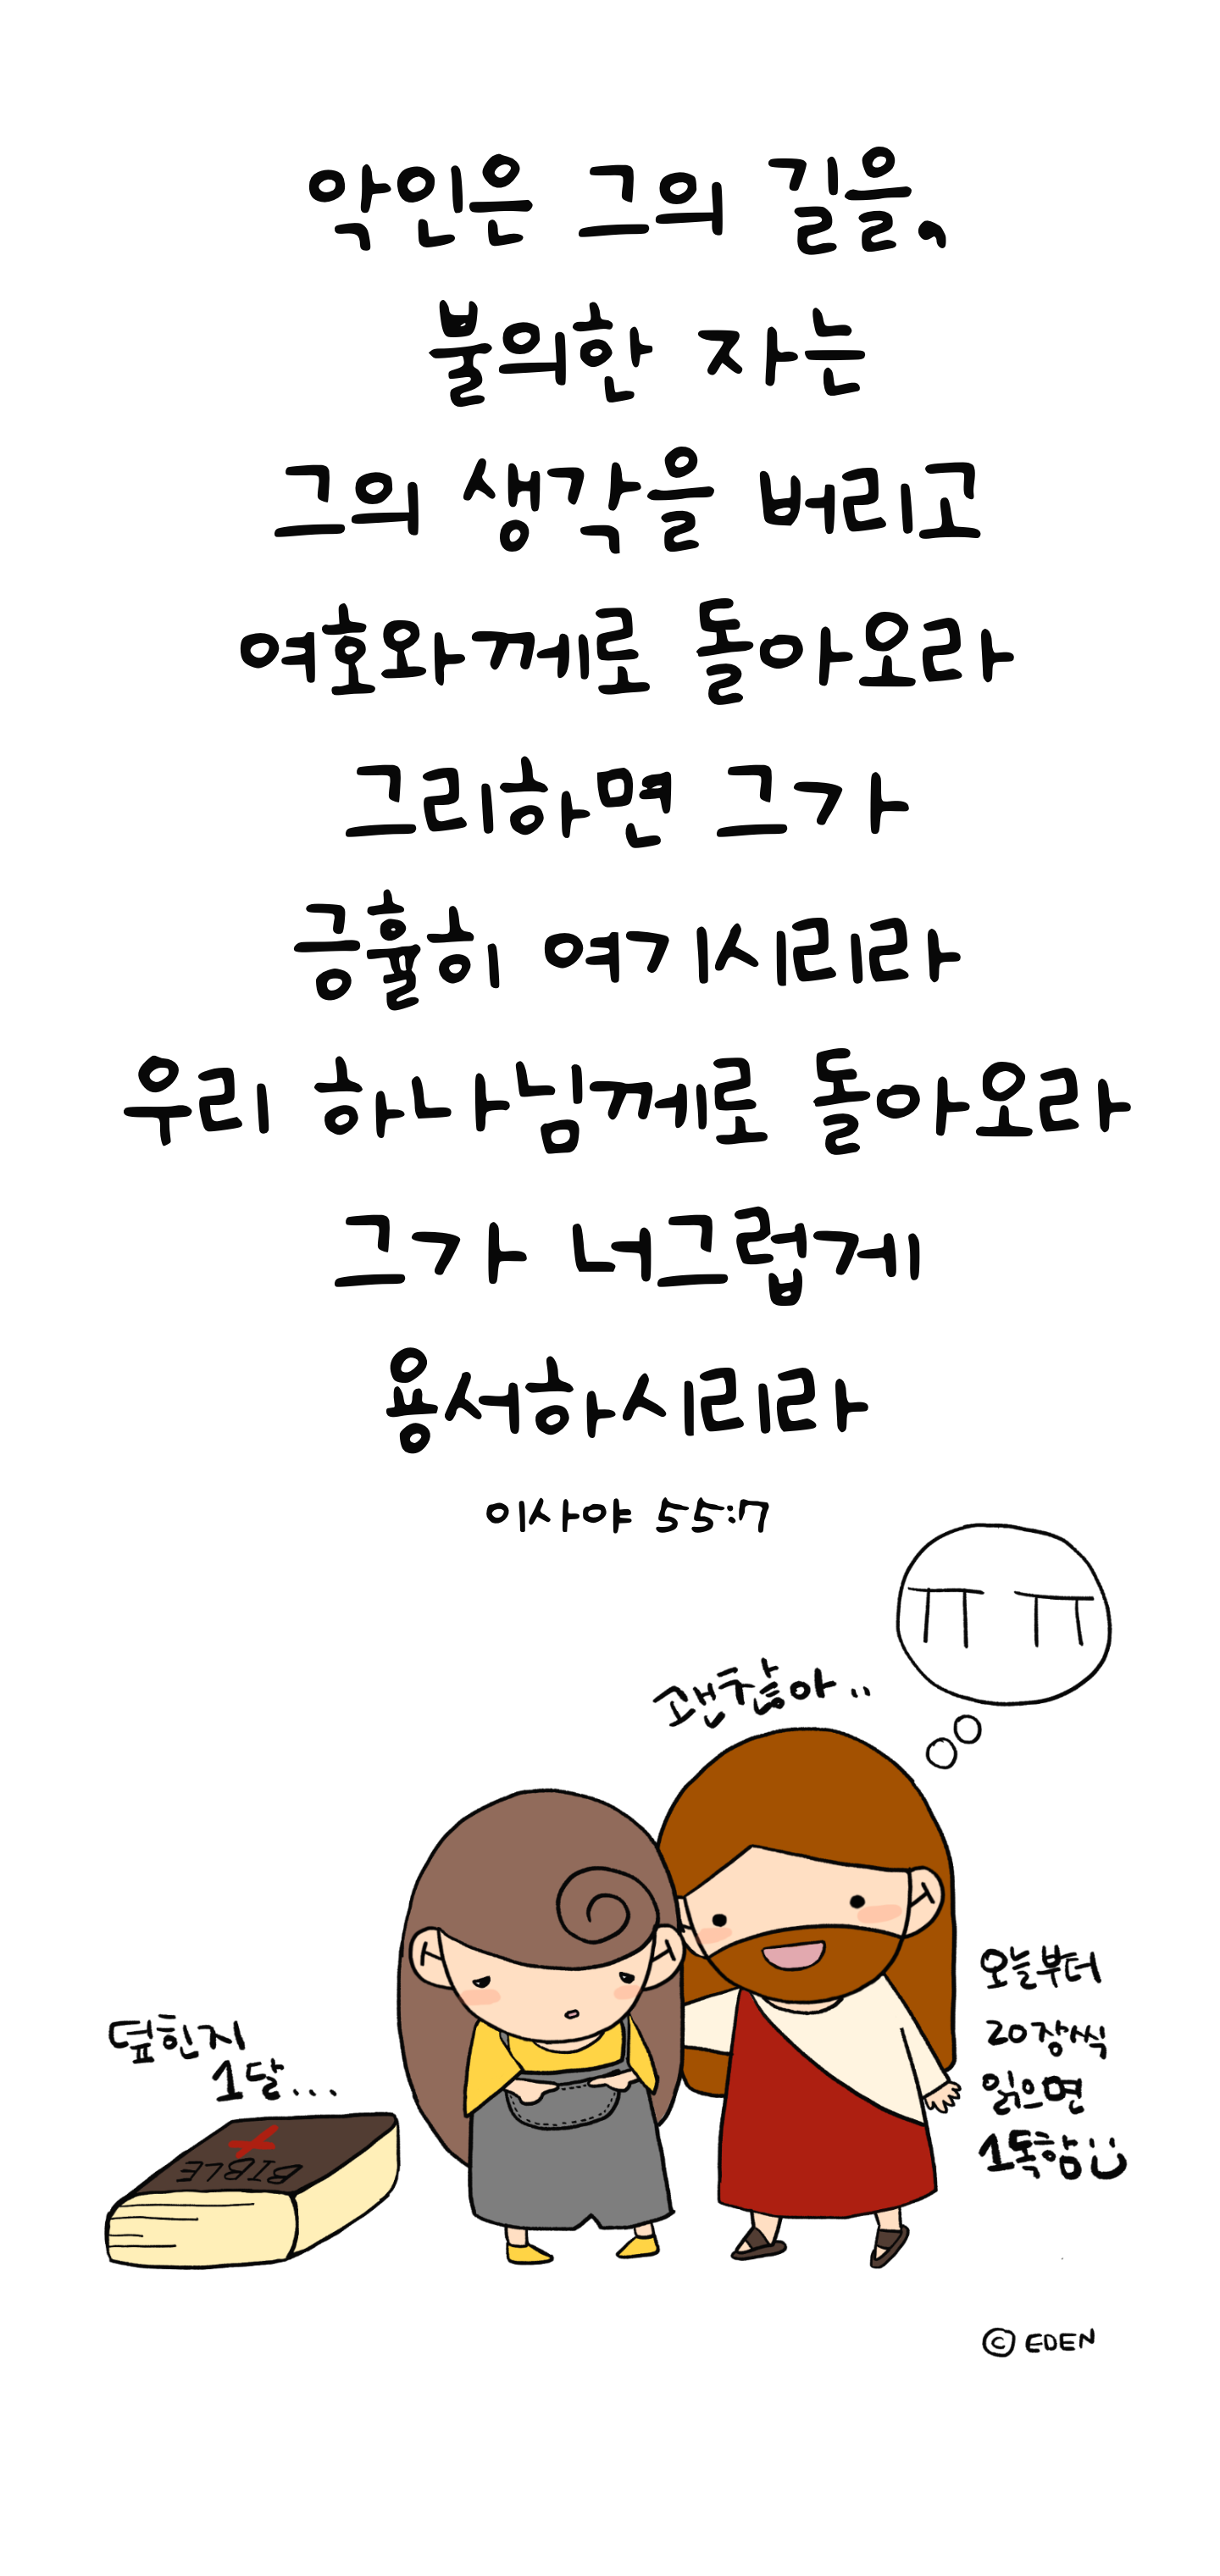 악인은 그의 길을,
불의한 자는
그의 생각을 버리고
여호와께로 돌아오라
그리하면 그가
긍휼히 여기시리라
우리 하나님께로 돌아오라
그가 너그럽게
용서하시리라
이사야 55:7
ㅠㅠ
괜찮아..
덮힌지
1달...
BIBLE
오늘부터
20장씩
읽으면
1독함
© EDEN